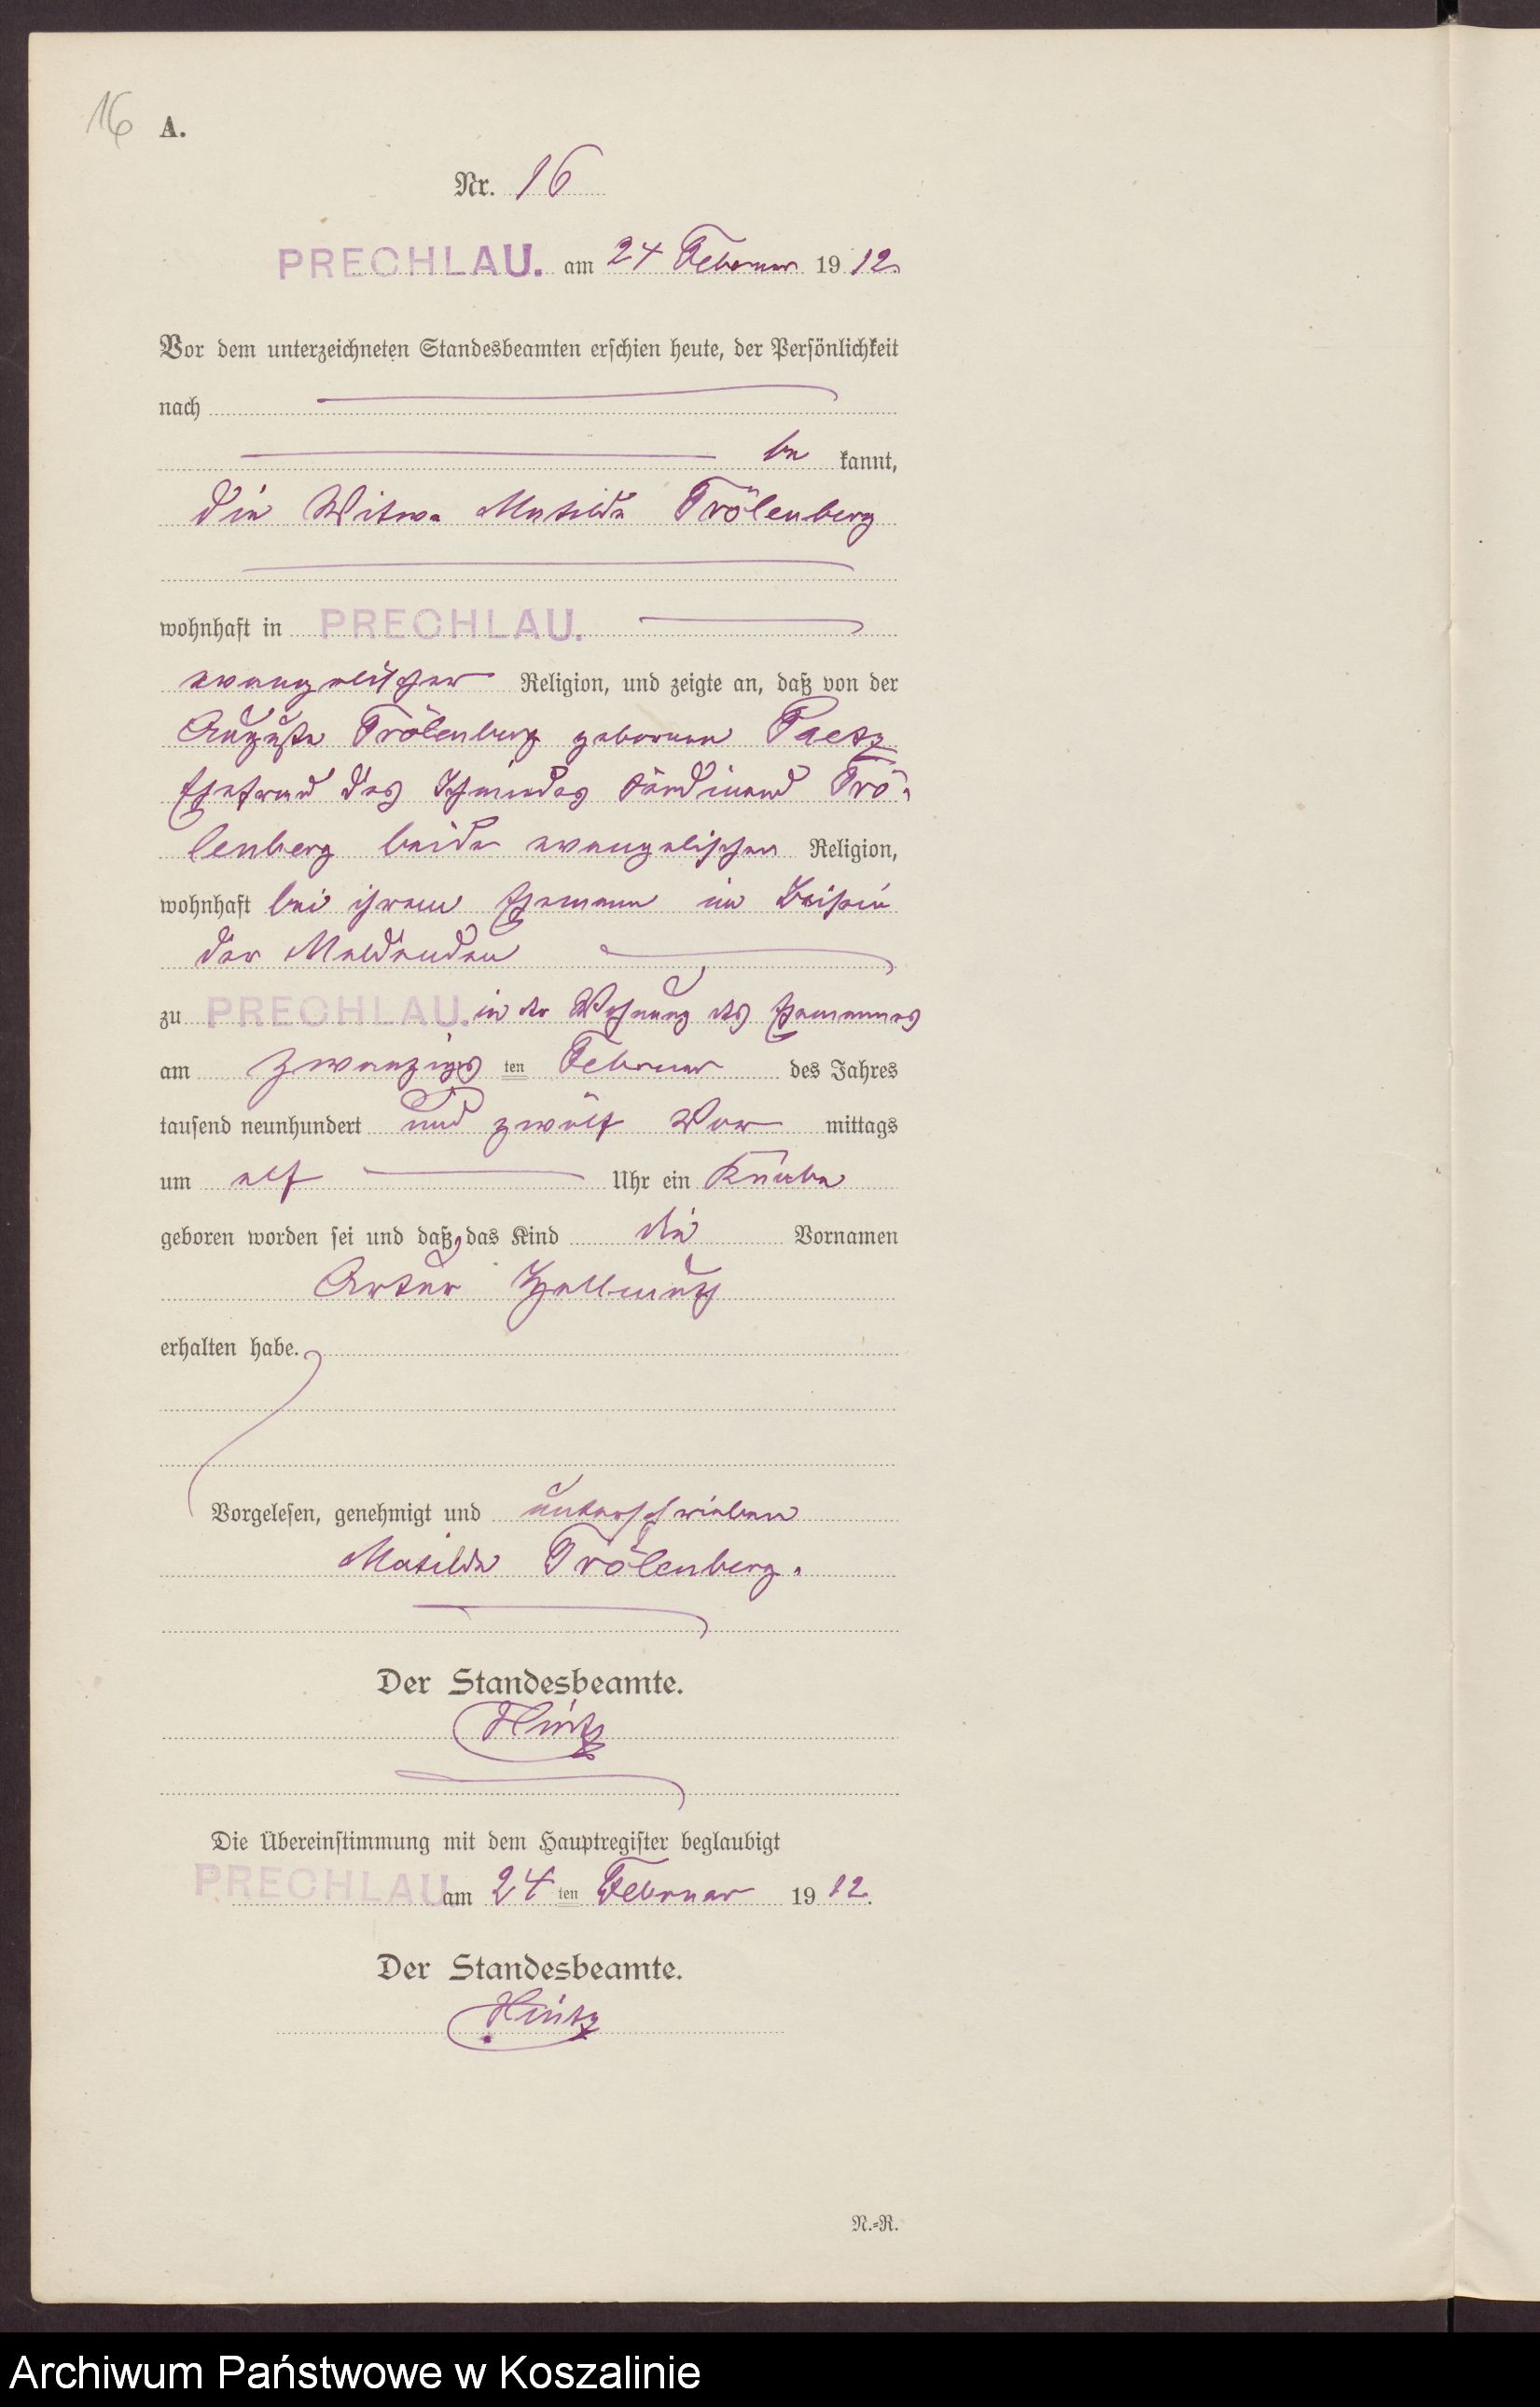 16 A.
Nr. 16
PRECHLAU. am 24 Februar 1912.
Vor dem unterzeichneten Standesbeamten erschien heute, der Persönlichkeit
nach
be kannt,
die Witwe Matilde Trölenberg
wohnhaft in PRECHLAU.
evangelischer Religion, und zeigte an, daß von der
Auguste Trölenberg geborenen Paetz
Ehefrau des Schmiedes Ferdinand Trö-
lenberg beide evangelischen Religion,
wohnhaft bei ihrem Ehemann im Beisein
der Meldenden
zu PRECHLAU. in der Wohnung des Ehemannes
am zwanzigs ten Februar des Jahres
tausend neunhundert und zwölf Vor mittags
um elf Uhr ein Knabe
geboren worden sei und daß das Kind die Vornamen
Artur Hellmuth
erhalten habe.
Vorgelesen, genehmigt und unterschrieben
Matilde Trölenberg.
Der Standesbeamte.
Hintz
Die Übereinstimmung mit dem Hauptregister beglaubigt
PRECHLAU. am 24 ten Februar 1912.
Der Standesbeamte.
Hintz
N.=R.
Archiwum Państwowe w Koszalinie